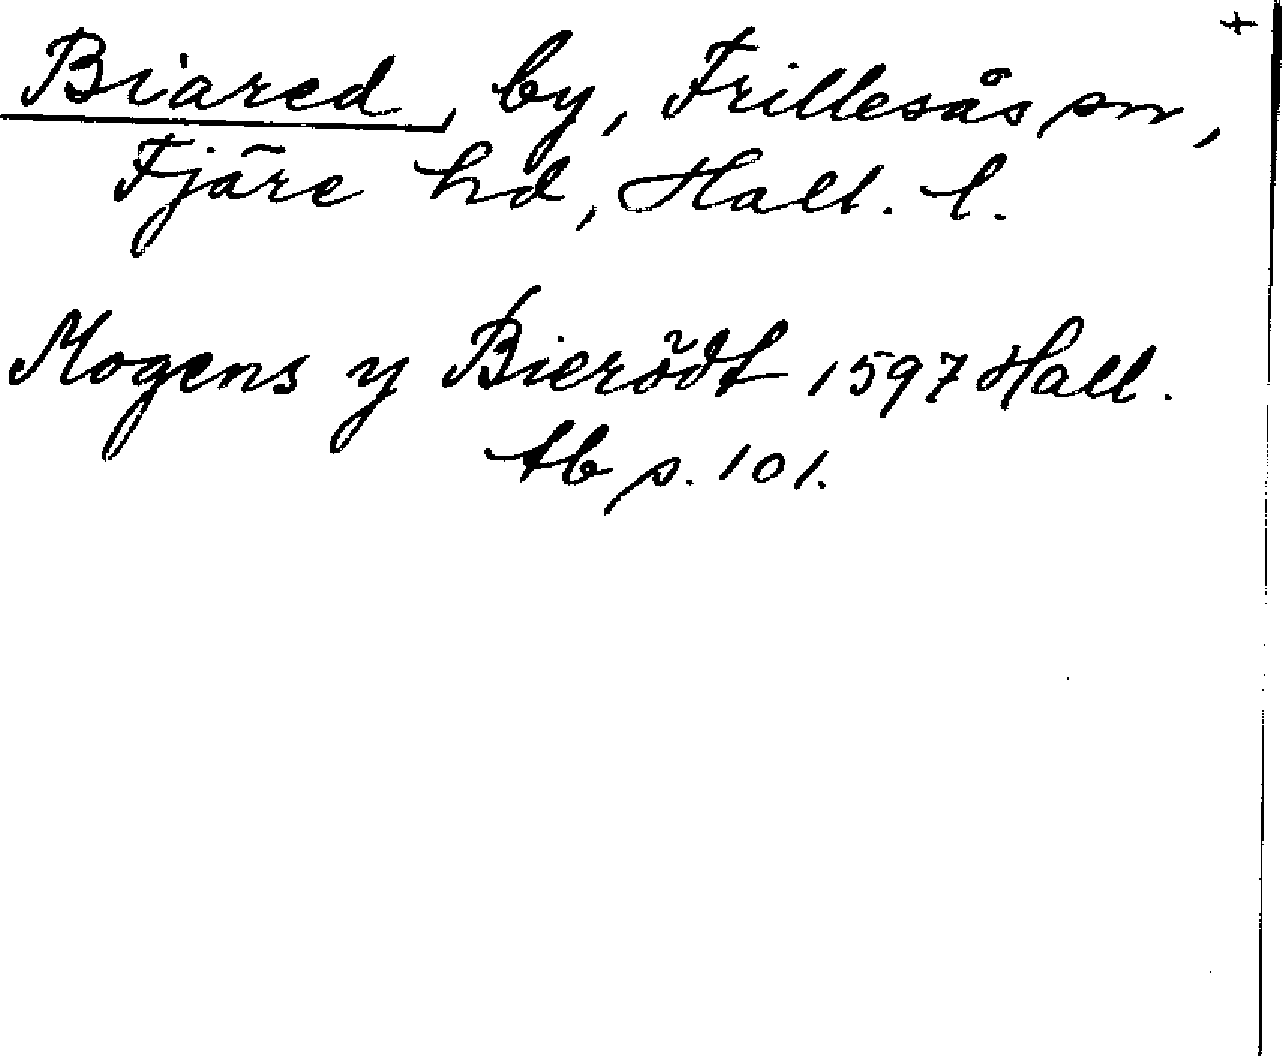 +
Biared, by, Frillesås sn,
Fjäre hd, Hall. l.
Mogens y Bierödt 1597 Hall.
tb s. 101.